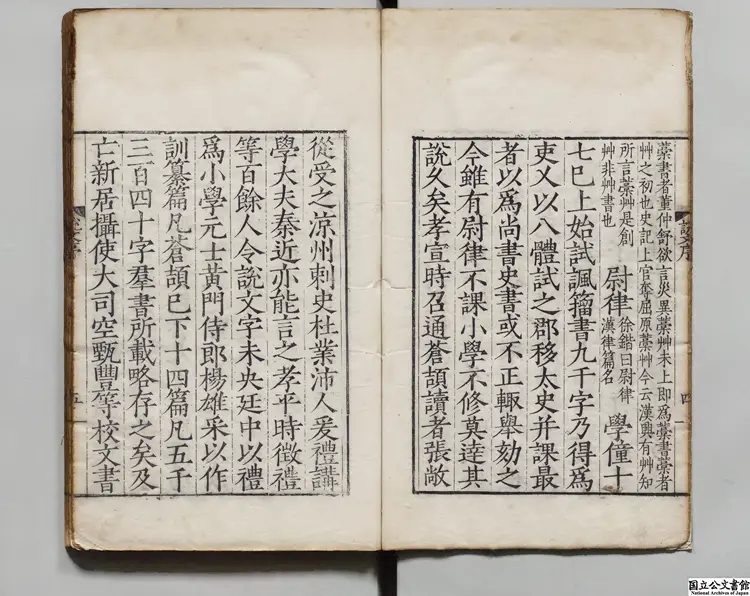 藁書者董仲舒欲言災異藁艸未上即爲藁書藁者
艸之初也史記上官奪屈原藁艸今云漢興有艸知
所言藁艸是創
艸非艸書也
尉律
徐鍇曰尉律
漢律篇名
學僮十
七已上始試諷籀書九千字乃得爲
吏又以八體試之郡移太史并課最
者以爲尚書史書或不正輙舉劾之
今雖有尉律不課小學不修莫達其
說久矣孝宣時召通蒼頡讀者張敞
從受之涼州刺史杜業沛人爰禮講
學大夫秦近亦能言之孝平時徵禮
等百餘人令說文字未央廷中以禮
爲小學元士黃門侍郎楊雄采以作
訓纂篇凡蒼頡已下十四篇凡五千
三百四十字羣書所載略存之矣及
亡新居攝使大司空甄豐等校文書
五
国立公文書館
National Archives of Japan